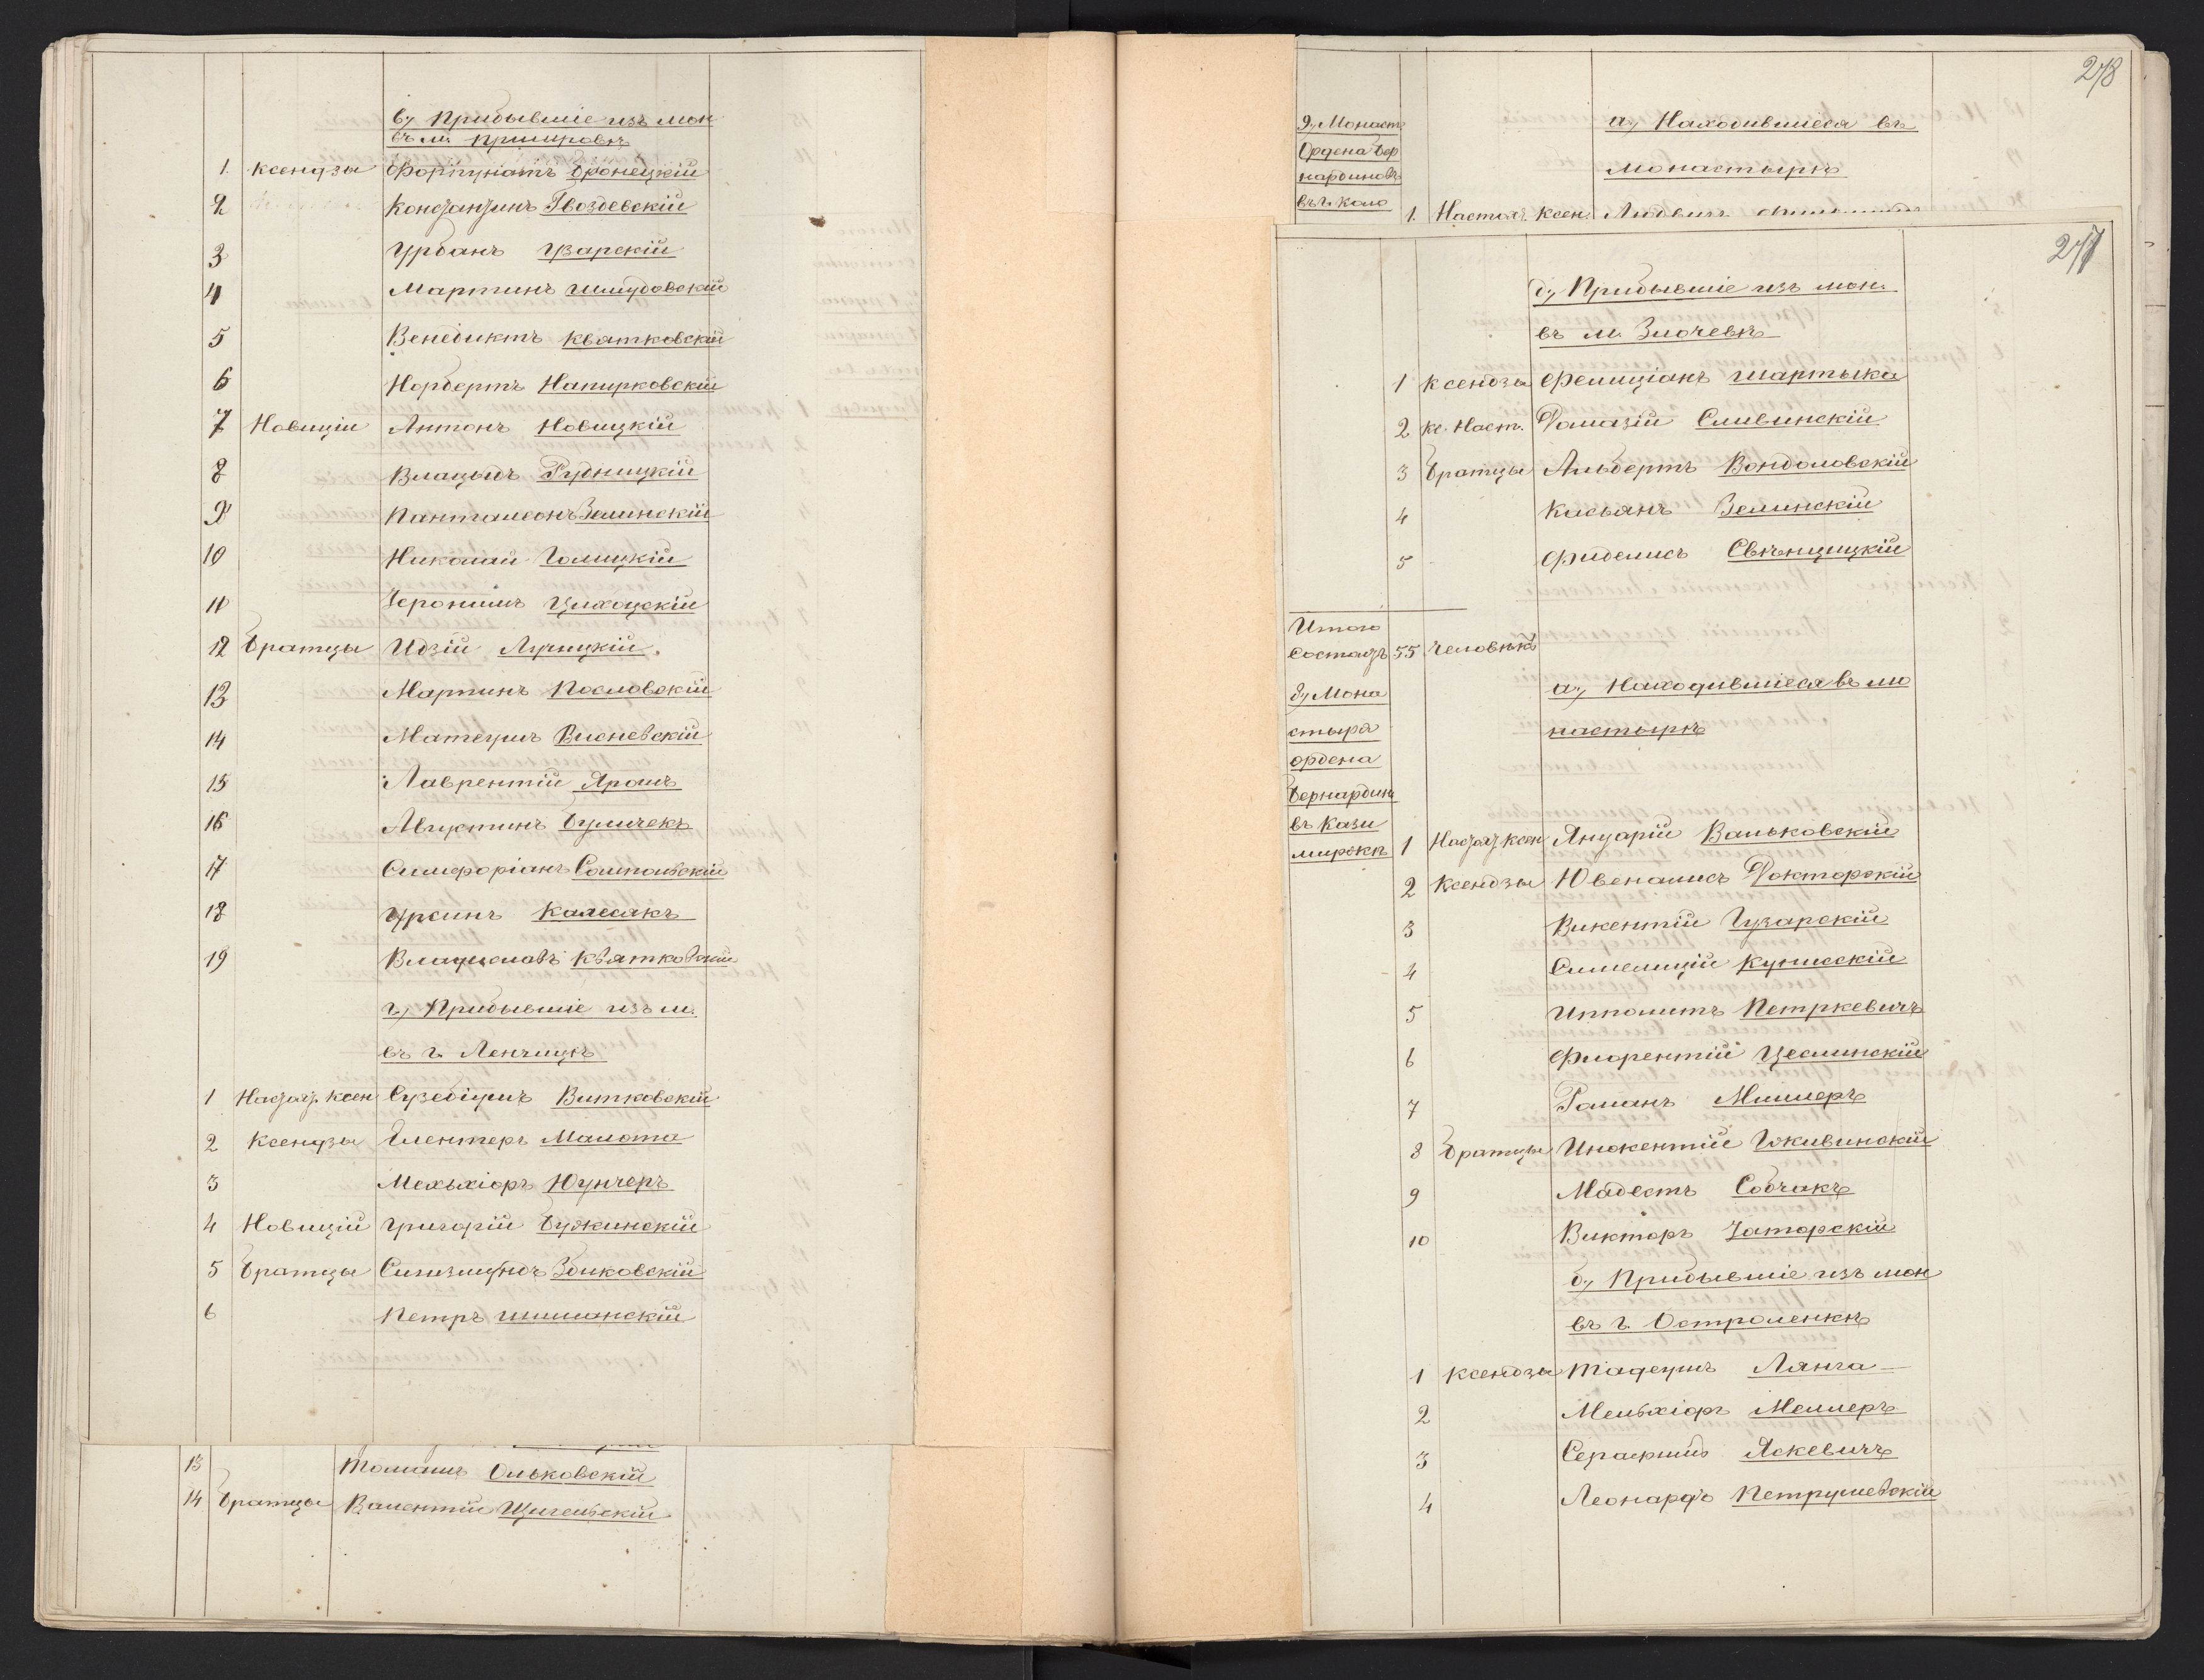 в., Прибывшіе изъ мон
въ м. Пршировѣ
1. Ксендзы Фортунатъ Бронецкій
2 Константинъ Гвоздевскій
3 Урбанъ Гзарскій
4 Мартинъ Шмудовскій
5 Венедиктъ Квятковскій
6 Норбертъ Напирковскій
7 Новиціи Антонъ Новицкій
8 Владыс Рудницкій
9 Панталеонъ Зелинскій
10 Николай Голицкій
11 Іеронимъ Цихоцкій
12 Братцы Идзій Лучицкій
13 Мартинъ Пословскій
14 Матеушъ Висневскій
15 Лаврентій Ярошъ
16 Августинъ Буличекъ
17 Симфоріанъ Сампольскій
18 Урсинъ Калсакъ
19 Владиславъ Квятковскій
г., Прибывшіе изъ м.
въ г. Ленчицѣ
1 Настоят. Ксен Еузебіушъ Витковскій
2 Ксендзы Елентеръ Малота
3 Мельхіоръ Юнчеръ
4 Новицій Григорій Бужинскій
5 Братцы Сигизмундъ Здиковскій
6 Петръ Шиманскій
13 Томашъ Ольковскій
14 Братцы Валентій Щигельскій
278
9., Монаст
Ордена Бер
нардиновъ
въ г. Коло
а., Находившіеся въ
монастырѣ
1. Настоят. Ксен. Людвигъ
277
д., Прибывшіе изъ мон.
въ м. Злочевѣ
1 Ксендзы Фелиціанъ Шартыка
2 Кс. Наст. Дамазій Сливинскій
3 Братцы Альбертъ Вондоловскій
4 Касьянъ Зелинскій
5 Фиделисъ Свѣнцицкій
Итого
Состоитъ 55 Человѣкъ
8., Мона
стыря
ордена
Бернардин
въ Кази
миржѣ
а., Находившіеся въ мо
настырѣ
1 Настоят Ксен Януарій Ваньковскій
2 Ксендзы Ювеналисъ Докторскій
3 Викентій Гузарскій
4 Симплицій Кулисскій
5 Ипполитъ Петркевичъ
6 Флорентій Цеслинскій
7 Романъ Миллеръ
8 Братцы Инокентій Гживинскій
9 Мадестъ Собчакъ
10 Викторъ Заторскій
б., Прибывшіе изъ мон
въ г. Остроленкѣ
1 Ксендзы Тадеушъ Лянга
2 Мельхіоръ Меллеръ
3 Серафимъ Яскевичъ
4 Леонардъ Петрушевскій